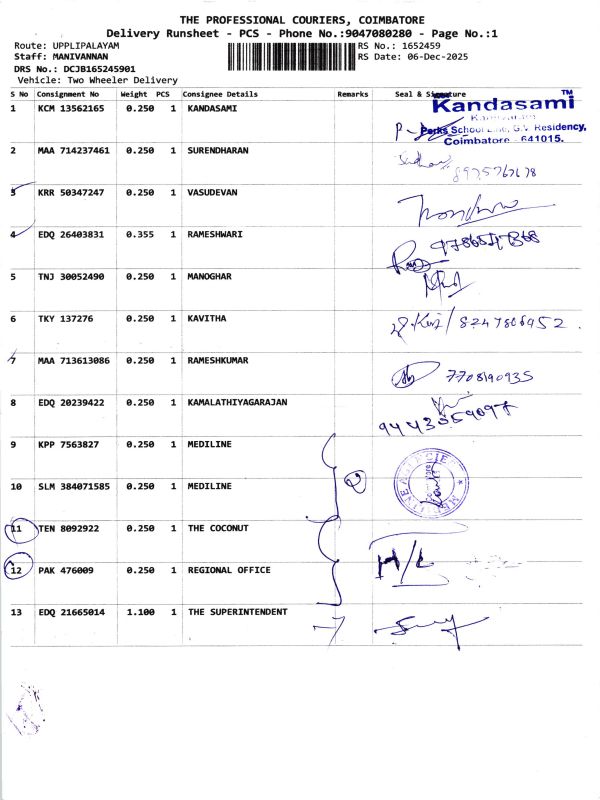 THE PROFESSIONAL COURIERS, COIMBATORE
Delivery Runsheet - PCS - Phone No.:9047080280 - Page No.:1
Route: UPPLIPALAYAM RS No.: 1652459
Staff: MANIVANNAN RS Date: 06-Dec-2025
DRS No.: DCJB165245901
Vehicle: Two Wheeler Delivery
S No Consignment No Weight PCS Consignee Details Remarks Seal & Signature
1 KCM 13562165 0.250 1 KANDASAMI
Kandasami TM
Parks School Line, G.V. Residency,
Coimbatore - 641015.
2 MAA 714237461 0.250 1 SURENDHARAN
8975767678
3 KRR 50347247 0.250 1 VASUDEVAN
4 EDQ 26403831 0.355 1 RAMESHWARI
5 TNJ 30052490 0.250 1 MANOGHAR
6 TKY 137276 0.250 1 KAVITHA / 8247806952.
7 MAA 713613086 0.250 1 RAMESHKUMAR 7708190935
8 EDQ 20239422 0.250 1 KAMALATHIYAGARAJAN
9443059097
9 KPP 7563827 0.250 1 MEDILINE
2
10 SLM 384071585 0.250 1 MEDILINE
11 TEN 8092922 0.250 1 THE COCONUT
H/L
12 PAK 476009 0.250 1 REGIONAL OFFICE
13 EDQ 21665014 1.100 1 THE SUPERINTENDENT